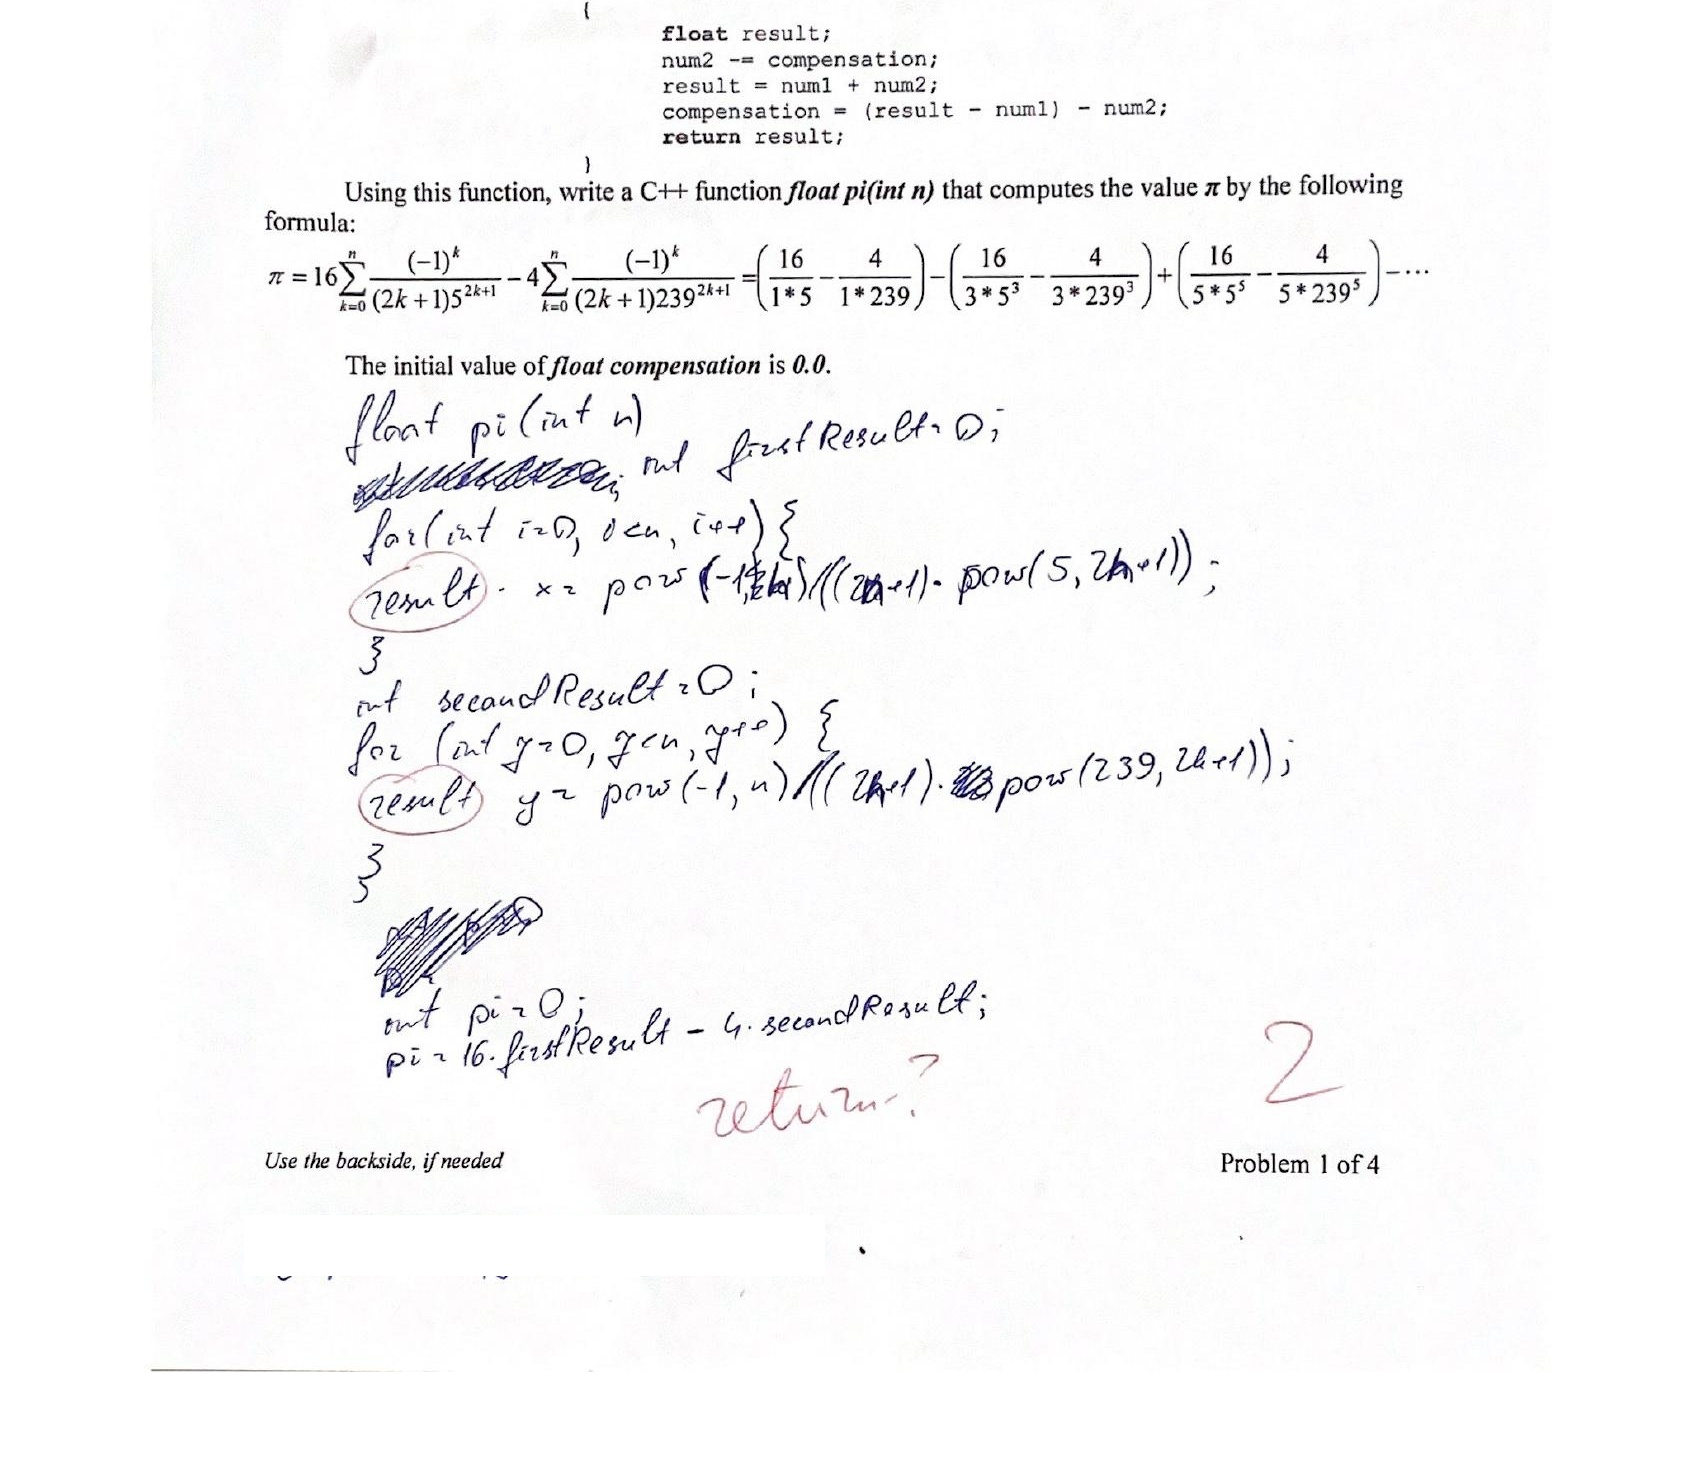 {
float result;
num2 -= compensation;
result = num1 + num2;
compensation = (result - num1) - num2;
return result;
}
Using this function, write a C++ function float pi(int n) that computes the value π by the following
formula:
π = 16 ∑_{k=0}^{n} (-1)^k / ((2k+1)5^{2k+1}) - 4 ∑_{k=0}^{n} (-1)^k / ((2k+1)239^{2k+1}) = (16/(1*5) - 4/(1*239)) - (16/(3*5^3) - 4/(3*239^3)) + (16/(5*5^5) - 4/(5*239^5)) - ...
The initial value of float compensation is 0.0.
float pi(int n)
int firstResult = 0;
for(int i=0, i<n, i++) {
result. x = pow(-1, ) / ((2 +1). pow(5, 2 +1));
}
int secondResult = 0;
for (int y=0, y<n, y++) {
result y = pow(-1, n) / ((2 +1). pow(239, 2 +1));
}
}
int pi = 0;
pi = 16. firstResult - 4. secondResult;
return?
2
Use the backside, if needed
Problem 1 of 4